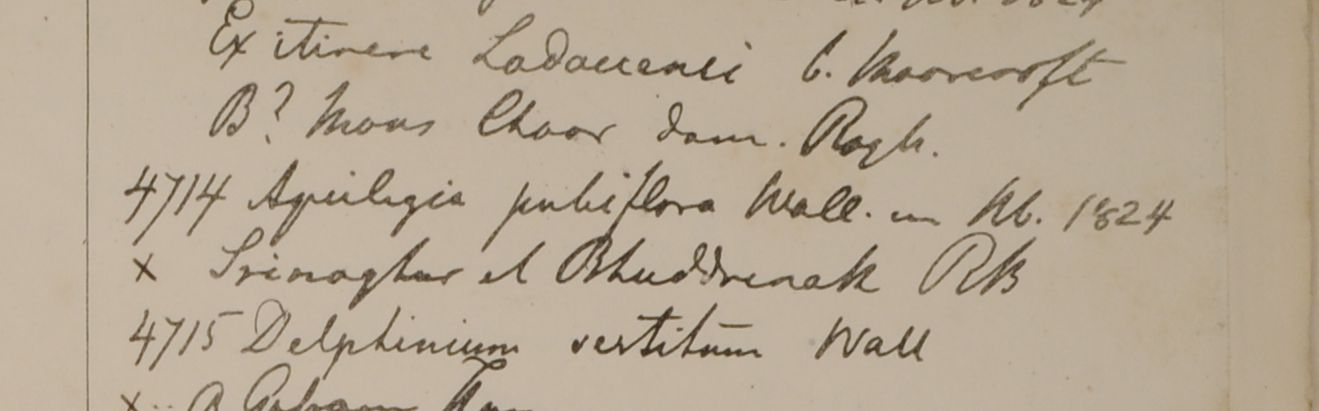 1824
Ex itinere Ladaccensi C. Moorcroft
B? Mons Choor dom. Rogh.
4714 Aquilegia pubiflora Wall. in Hb. 1824
x Srinaghur et Bhuddrenak RB
4715 Delphinium vestitum Wall
x